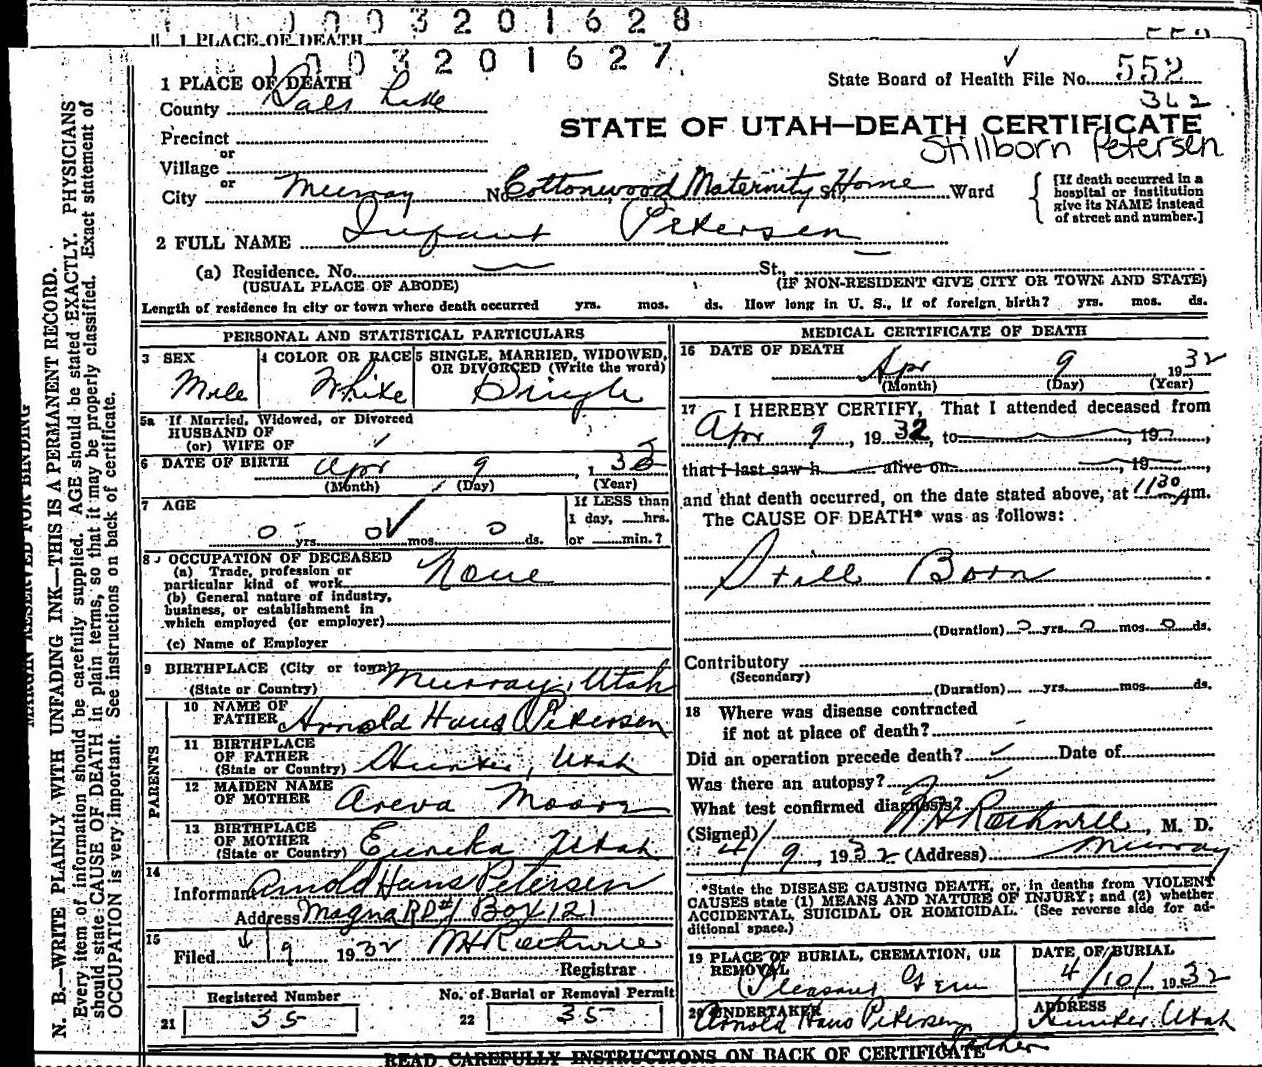 0003201628
1 PLACE OF DEATH
1003201627
1 PLACE OF DEATH
State Board of Health File No. 552
362
County Salt Lake
STATE OF UTAH—DEATH CERTIFICATE
Stillborn Petersen
Precinct
or
Village
or
City Murray No. Cottonwood Maternity St., Home Ward
[If death occurred in a hospital or institution give its NAME instead of street and number.]
2 FULL NAME Infant Petersen
(a) Residence. No. St.,
(USUAL PLACE OF ABODE) (IF NON-RESIDENT GIVE CITY OR TOWN AND STATE)
Length of residence in city or town where death occurred yrs. mos. ds. How long in U. S., if of foreign birth? yrs. mos. ds.
PERSONAL AND STATISTICAL PARTICULARS
3 SEX 4 COLOR OR RACE 5 SINGLE, MARRIED, WIDOWED, OR DIVORCED (Write the word)
Male White Single
5a If Married, Widowed, or Divorced
HUSBAND OF
(or) WIFE OF
6 DATE OF BIRTH Apr 9, 1932
(Month) (Day) (Year)
7 AGE If LESS than
1 day, hrs.
0 yrs. 0 mos. 0 ds. or min.?
8 OCCUPATION OF DECEASED
(a) Trade, profession or
particular kind of work None
(b) General nature of industry,
business, or establishment in
which employed (or employer)
(c) Name of Employer
9 BIRTHPLACE (City or town) Murray, Utah
(State or Country)
PARENTS
10 NAME OF
FATHER Arnold Hans Petersen
11 BIRTHPLACE
OF FATHER
(State or Country) Hunter, Utah
12 MAIDEN NAME
OF MOTHER Areva Moore
13 BIRTHPLACE
OF MOTHER
(State or Country) Eureka Utah
14
Informant Arnold Hans Petersen
Address Magna RD#1 Box 121
15
Filed 4 9 1932
Registrar
Registered Number No. of Burial or Removal Permit
21 35 22 35
MEDICAL CERTIFICATE OF DEATH
16 DATE OF DEATH
Apr 9, 1932
(Month) (Day) (Year)
17 I HEREBY CERTIFY, That I attended deceased from
Apr 9, 1932, to , 19 ,
that I last saw h alive on , 19 ,
and that death occurred, on the date stated above, at 11 30 Am.
The CAUSE OF DEATH* was as follows:
Still Born
(Duration) 0 yrs. 0 mos. 0 ds.
Contributory
(Secondary)
(Duration) yrs. mos. ds.
18 Where was disease contracted
if not at place of death?
Did an operation precede death? Date of
Was there an autopsy?
What test confirmed diagnosis?
(Signed) , M. D.
4/9, 1932 (Address) Murray
*State the DISEASE CAUSING DEATH, or, in deaths from VIOLENT
CAUSES state (1) MEANS AND NATURE OF INJURY; and (2) whether
ACCIDENTAL, SUICIDAL OR HOMICIDAL. (See reverse side for ad-
ditional space.)
19 PLACE OF BURIAL, CREMATION, OR
REMOVAL
Pleasant Green
DATE OF BURIAL
4/10/1932
20 UNDERTAKER
Arnold Hans Petersen
Father
ADDRESS
Hunter, Utah
READ CAREFULLY INSTRUCTIONS ON BACK OF CERTIFICATE
MARGIN RESERVED FOR BINDING
N. B.—WRITE PLAINLY WITH UNFADING INK—THIS IS A PERMANENT RECORD.
Every item of information should be carefully supplied. AGE should be stated EXACTLY. PHYSICIANS
should state CAUSE OF DEATH in plain terms, so that it may be properly classified. Exact statement of
OCCUPATION is very important. See instructions on back of certificate.